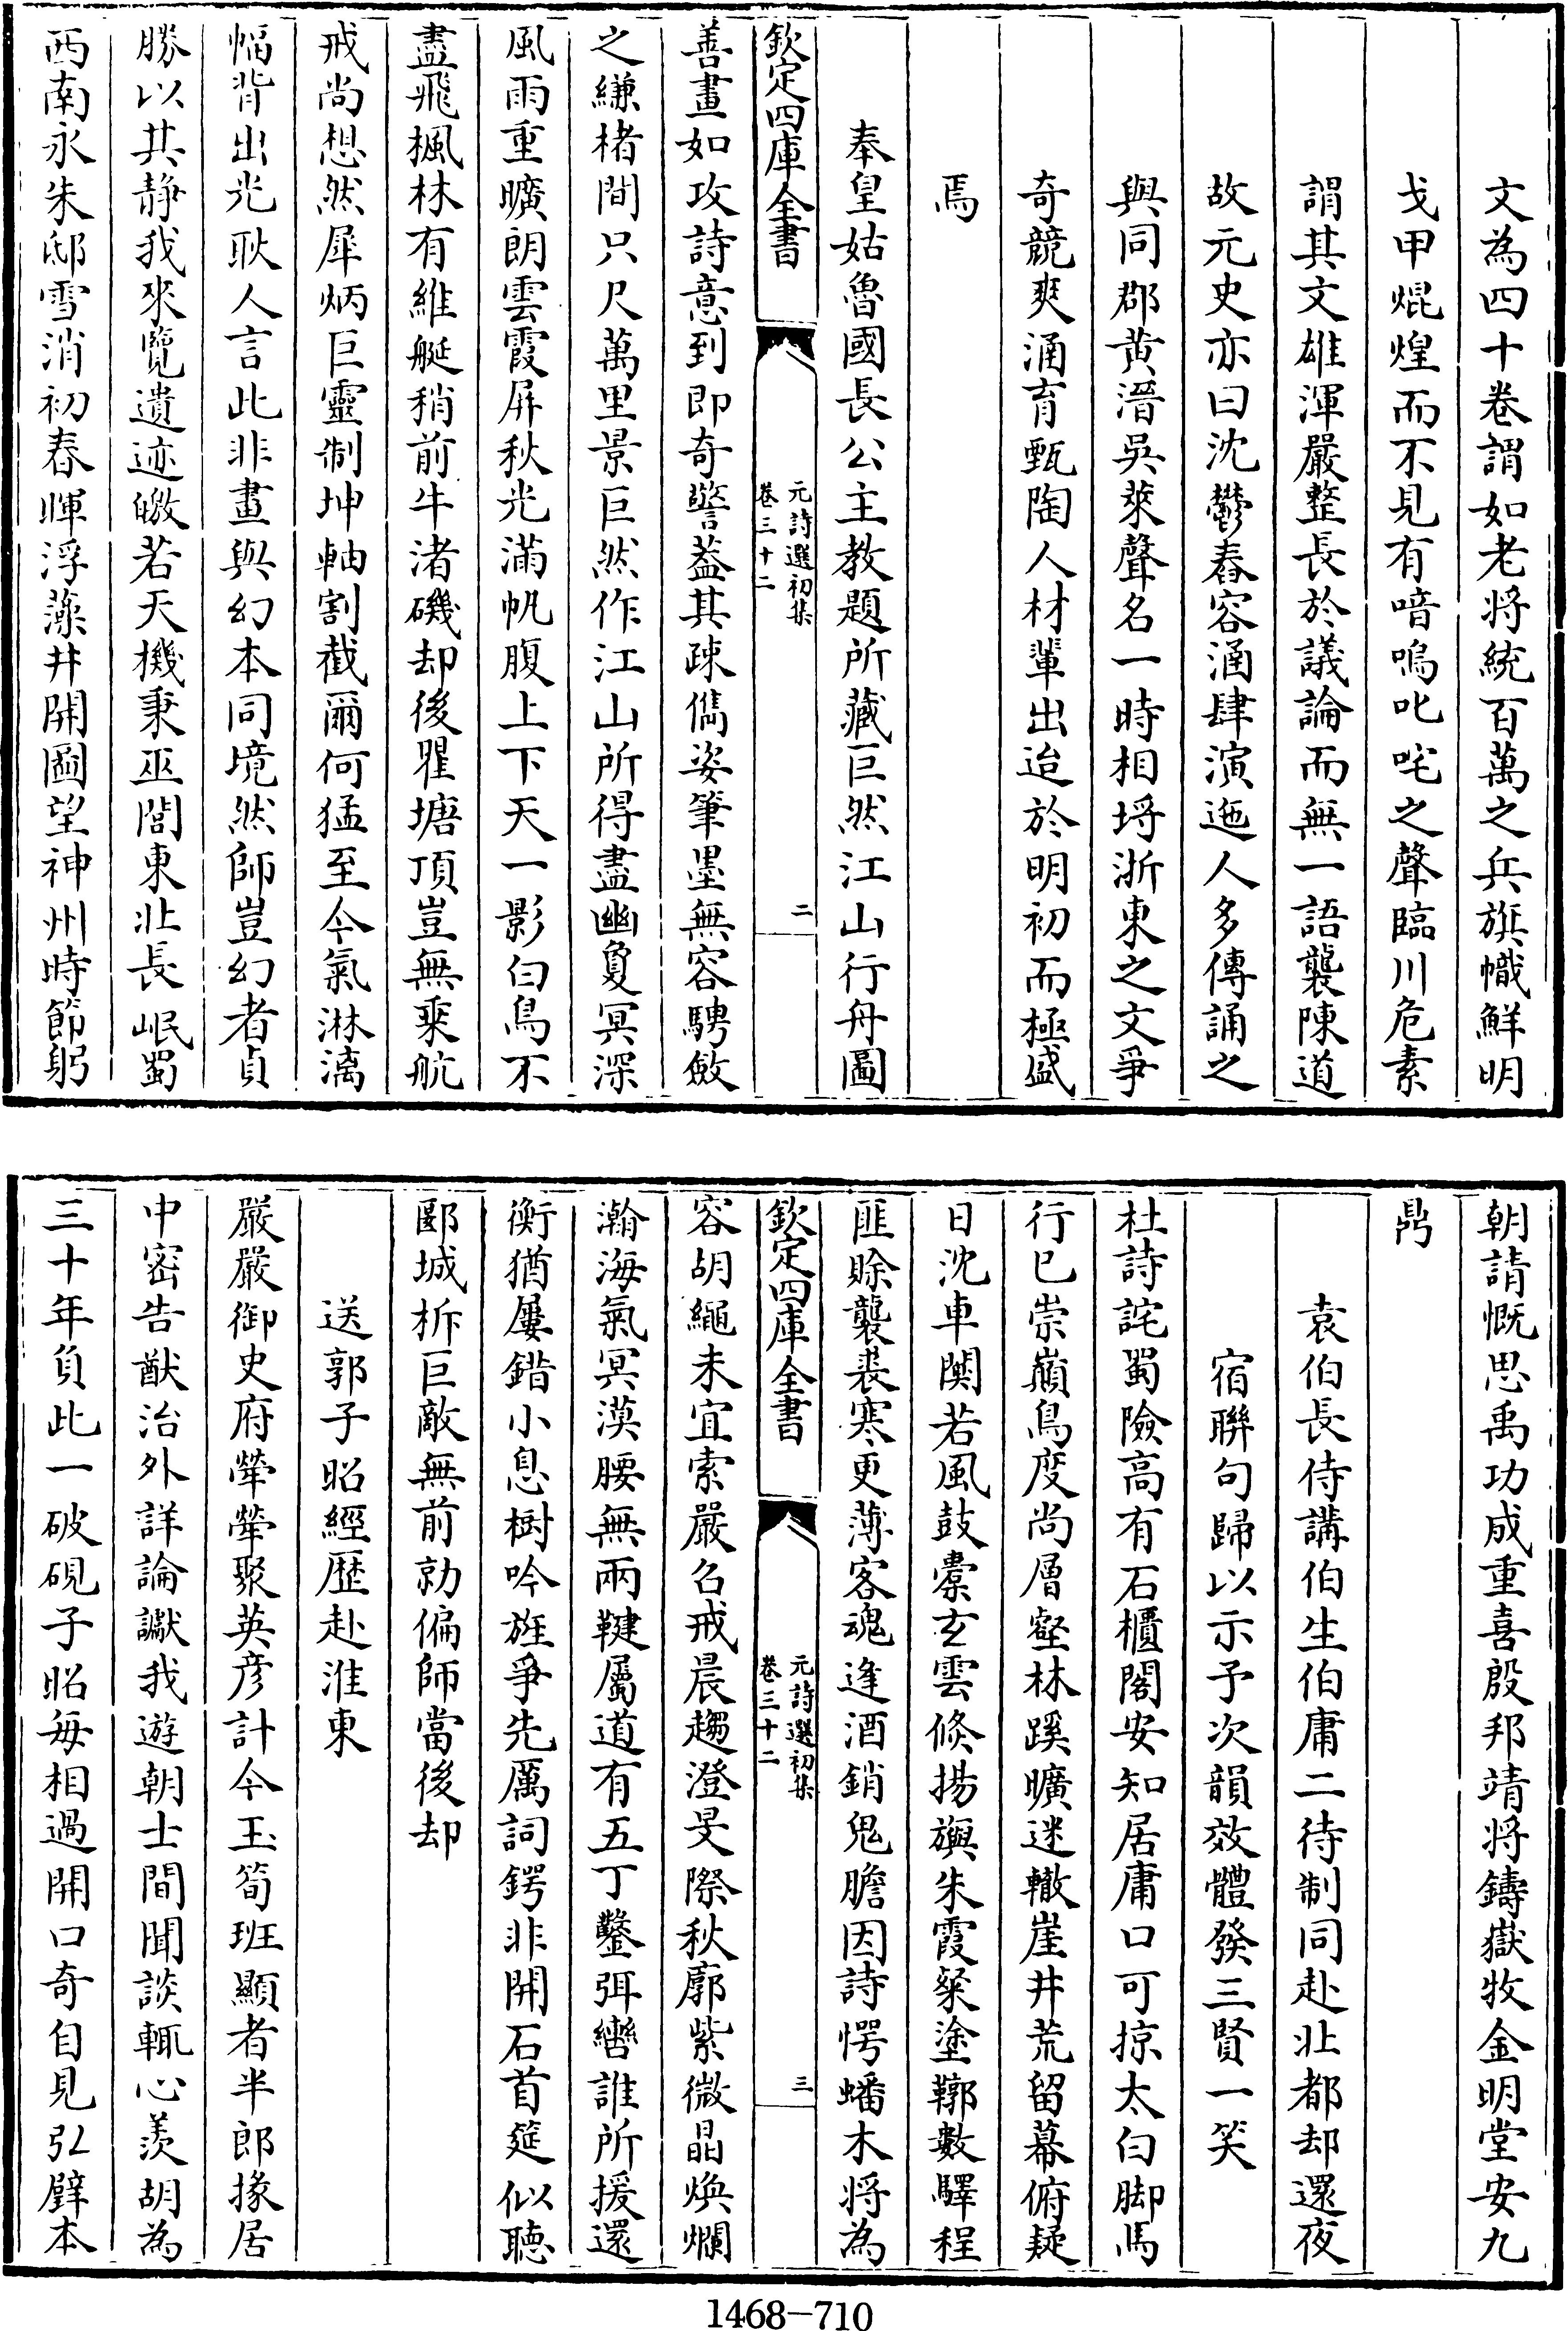 文為四十卷謂如老將統百萬之兵旗幟鮮明
戈甲焜煌而不見有喑嗚叱咤之聲臨川危素
謂其文雄渾嚴整長於議論而無一語襲陳道
故元史亦曰沈鬱舂容涵肆演迤人多傳誦之
與同郡黄溍吳萊聲名一時相埒浙東之文爭
奇競爽涵育甄陶人材輩出迨於明初而極盛
焉
奉皇姑魯國長公主教題所藏巨然江山行舟圖
欽定四庫全書
元詩選初集
卷三十二
二
善畫如攻詩意到即奇警葢其疎儁姿筆墨無容騁斂
之縑楮間只尺萬里景巨然作江山所得盡幽敻冥深
風雨重曠朗雲霞屏秋光滿帆腹上下天一影白鳥不
盡飛楓林有維艇稍前牛渚磯却後瞿塘頂豈無乘航
戒尚想然犀炳巨靈制坤軸割截爾何猛至今氣淋漓
幅背出光耿人言此非畫與幻本同境然師豈幻者貞
勝以其靜我來覽遺迹皦若天機秉巫閭東北長岷蜀
西南永朱邸雪消初春暉浮藻井開圖望神州時節躬
朝請慨思禹功成重喜殷邦靖將鑄嶽牧金明堂安九
鼎
袁伯長侍講伯生伯庸二待制同赴北都却還夜
宿聯句歸以示予次韻效體發三賢一笑
杜詩詫蜀險高有石櫃閣安知居庸口可掠太白脚馬
行已崇巔鳥度尚層壑林蹊曠迷轍崖井荒留幕俯疑
日沈車闃若風鼓橐玄雲倏揚旟朱霞粲塗鞹數驛程
匪賒襲裘寒更薄客魂逢酒銷鬼膽因詩愕蟠木將為
欽定四庫全書
元詩選初集
卷三十二
三
容胡繩未宜索嚴召戒晨趨澄旻際秋廓紫微晶煥爛
瀚海氣冥漠腰無兩鞬屬道有五丁鑿弭轡誰所援還
衡猶屢錯小息樹吟旌爭先厲詞鍔非開石首筵似聽
郾城柝巨敵無前勍偏師當後却
送郭子昭經歷赴淮東
嚴嚴御史府犖犖聚英彥計今玉筍班顯者半郎掾居
中密告猷治外詳論讞我遊朝士間聞談輒心羨胡為
三十年負此一破硯子昭每相過開口奇自見弘辟本
1468-710